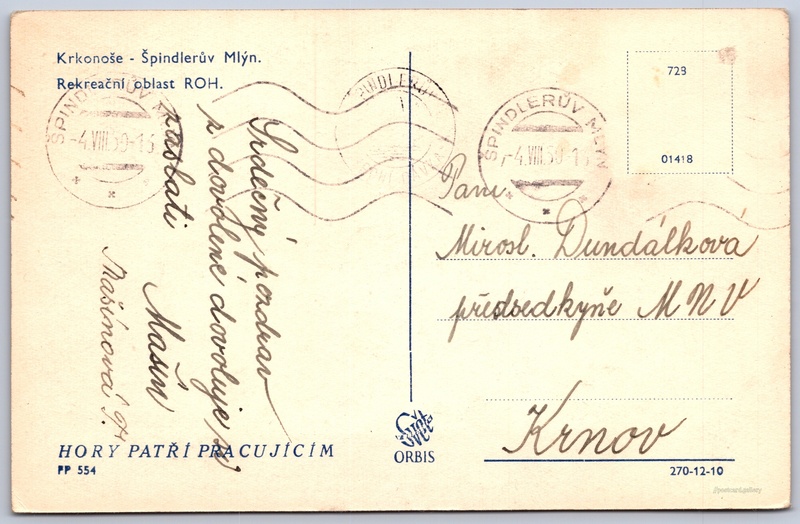 Krkonoše - Špindlerův Mlýn.
Rekreační oblast ROH.
ŠPINDLERŮV MLÝN
-4.VIII.50-15
ŠPINDLERŮV MLÝN
-4.VIII.50-15
728
01418
Srdečný pozdrav
z dovolené dovoluje si
zaslati
Mašín
Mašínová
Paní
Mirosl. Dundálková
předsedkyňe MNV
Krnov
HORY PATŘÍ PRACUJÍCÍM
FP 554
ORBIS
270-12-10